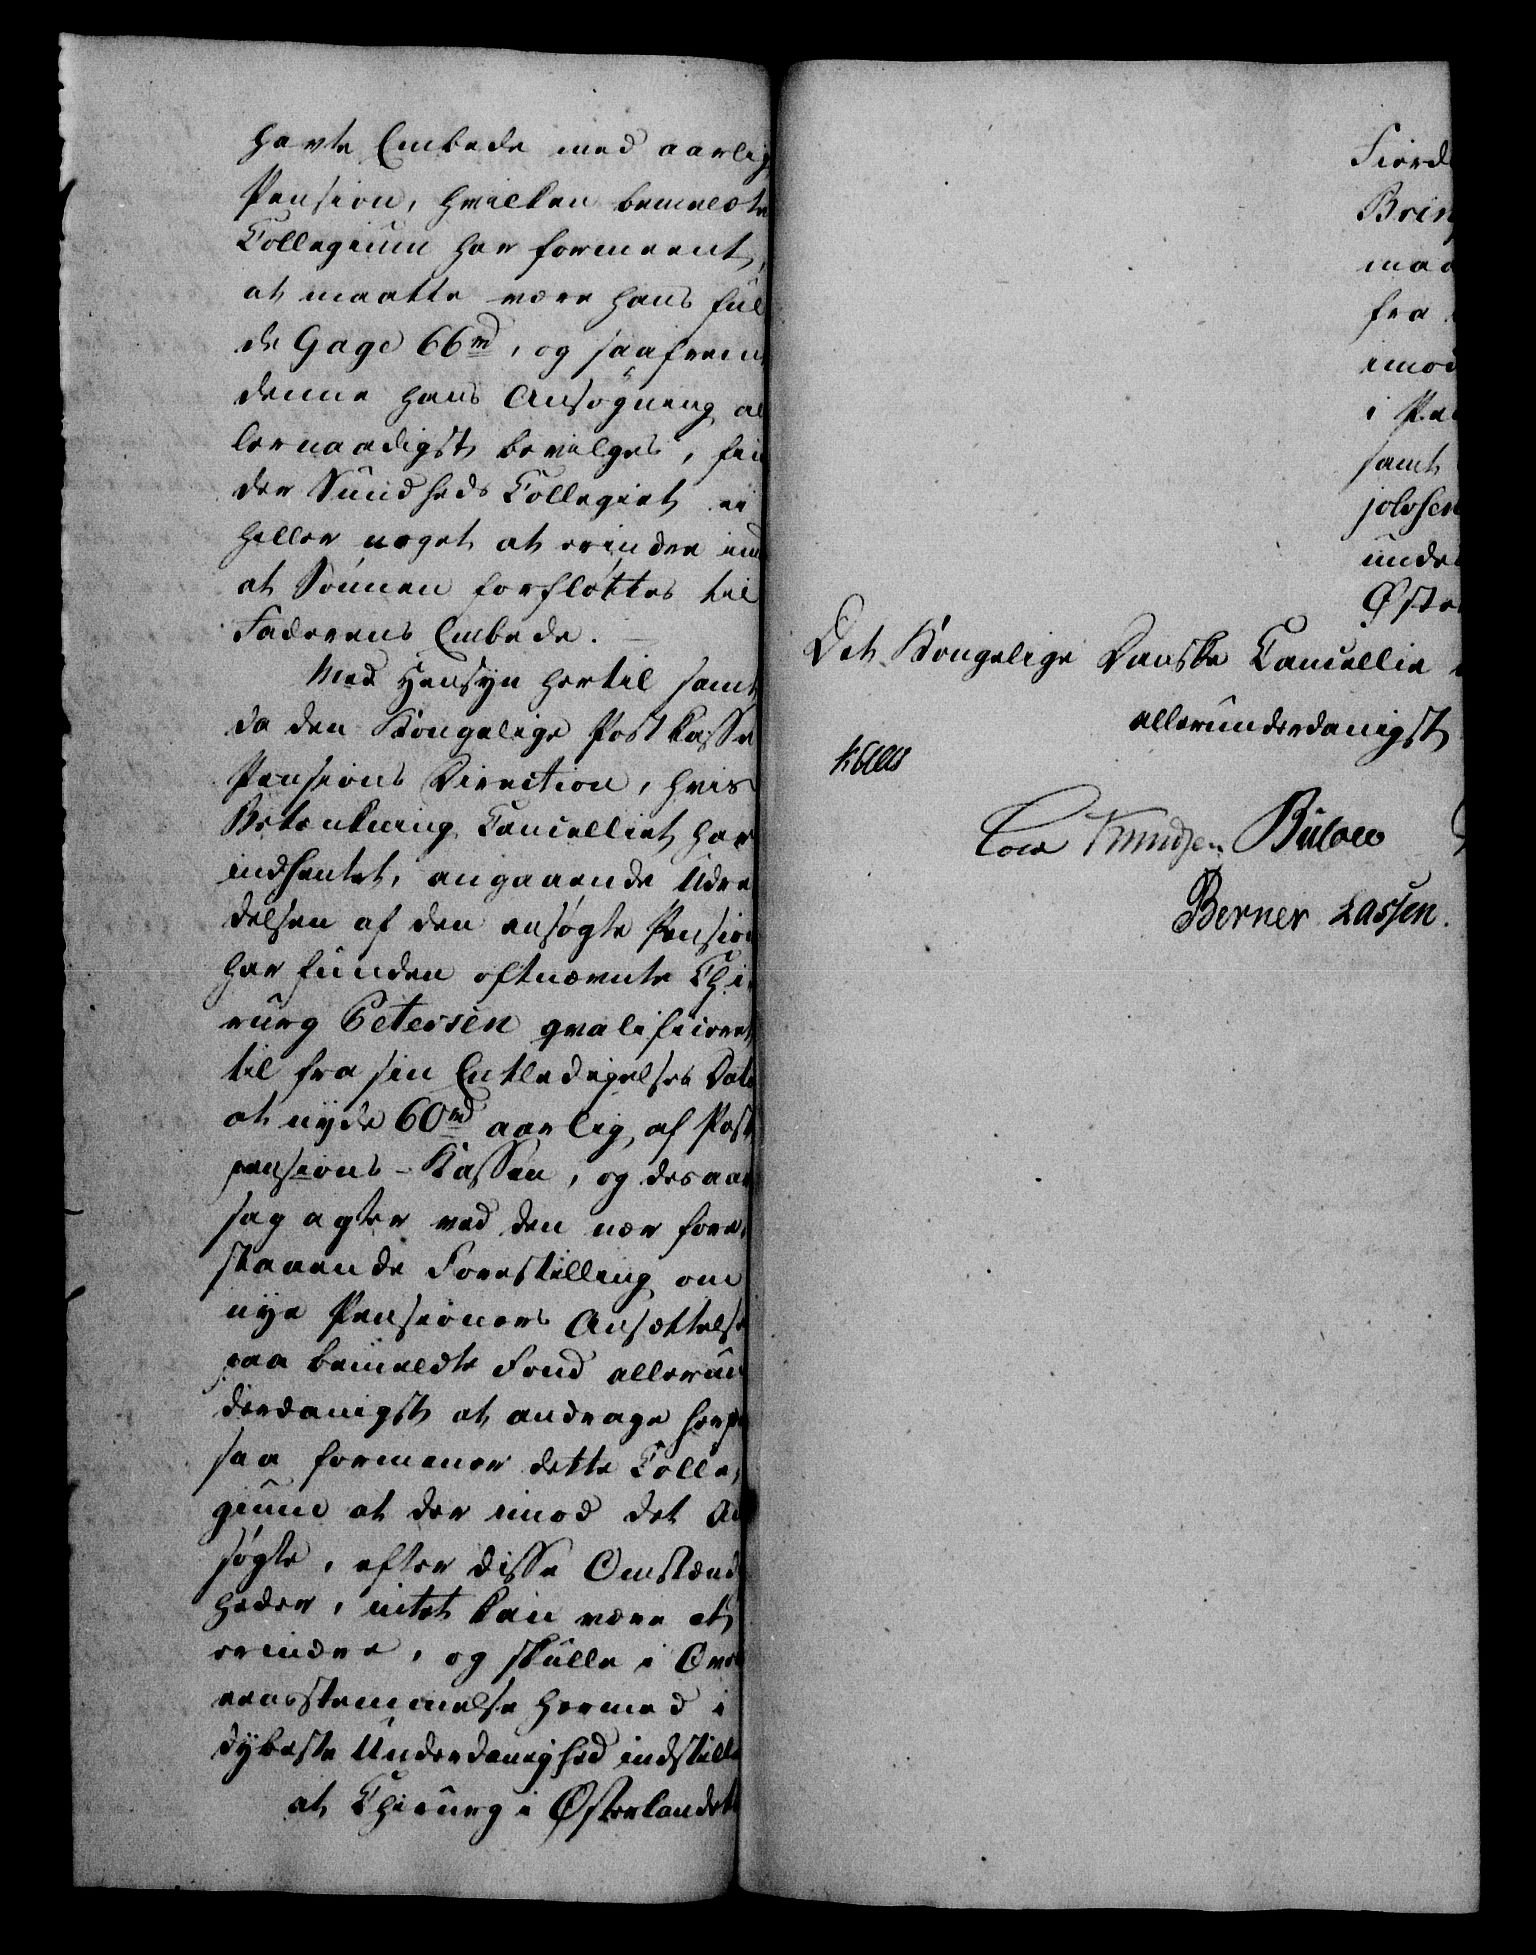 havte Embede med aarlig
Pension, hvilken bemeldte
Collegium har formeent,
at maatte være hans ful
de Gage 66 rd, og saafrem
denne hans Ansøgning al
lernaadigst bevilges, fin
der Sundheds Collegiet ei
heller noget at erindre imod
at Sønnen forfløttes til
Faderens Embede. —
Med Hensyn hertil samt
da den Kongelige Post Casse
Pensions Direction, hvis
Betænkning Cancelliet har
indhentet, angaaende Udre
delsen af den ansøgte Pension
har funden oftnævnte Chi
rurg Petersen qvalificeret
til fra sin Entledigelses Dato
at nyde 60 rd aarlig, af Post
pensions-Kassen, og desaar
sag agter ved den nær fore
staaende Forestilling om
nye Pensioners Ansættelse
paa bemeldte Fond allerun
derdanigst at andrage herpaa
saa formener dette Colle
gium at der imod det An
søgte, efter disse Omstænd
heder, intet kan være at
erindre, og skulle i Over
eensstemmelse hermed i
dybeste Underdanighed indstille
at Chirurg i Østerlandet
Fierd
Brin
maa
fra
imod
i Pen
samt
jolvsen
unde
Øste
Det Kongelige Danske Cancellie
allerunderdanigst
Kaas
Cold Knudsen Bülow
Berner Lassen.